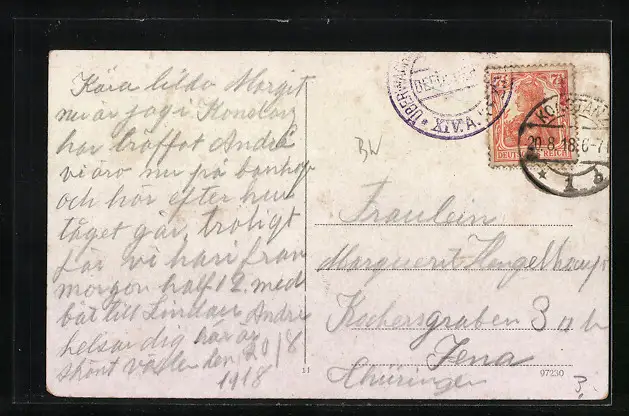 Kära lilla Margit
nu är jag i Konstanz
har träffat André
vi äro nu på banhof
och hör efter hur
tåget går, troligt
far vi härifrån
morgon half 12 med
båt till Lindau André
helsar dig här är
skönt väder den 20/8
1918
ÜBERWACHUNGS
XIV. A.
7½ 7½
DEUTSCHES REICH
KONSTANZ
20.8.18. 6-7
* 1 b
BW
Fräulein
Marguerit Hengelhaupt
Kochersgraben 3
Jena
Thüringen
11
97230
3,-